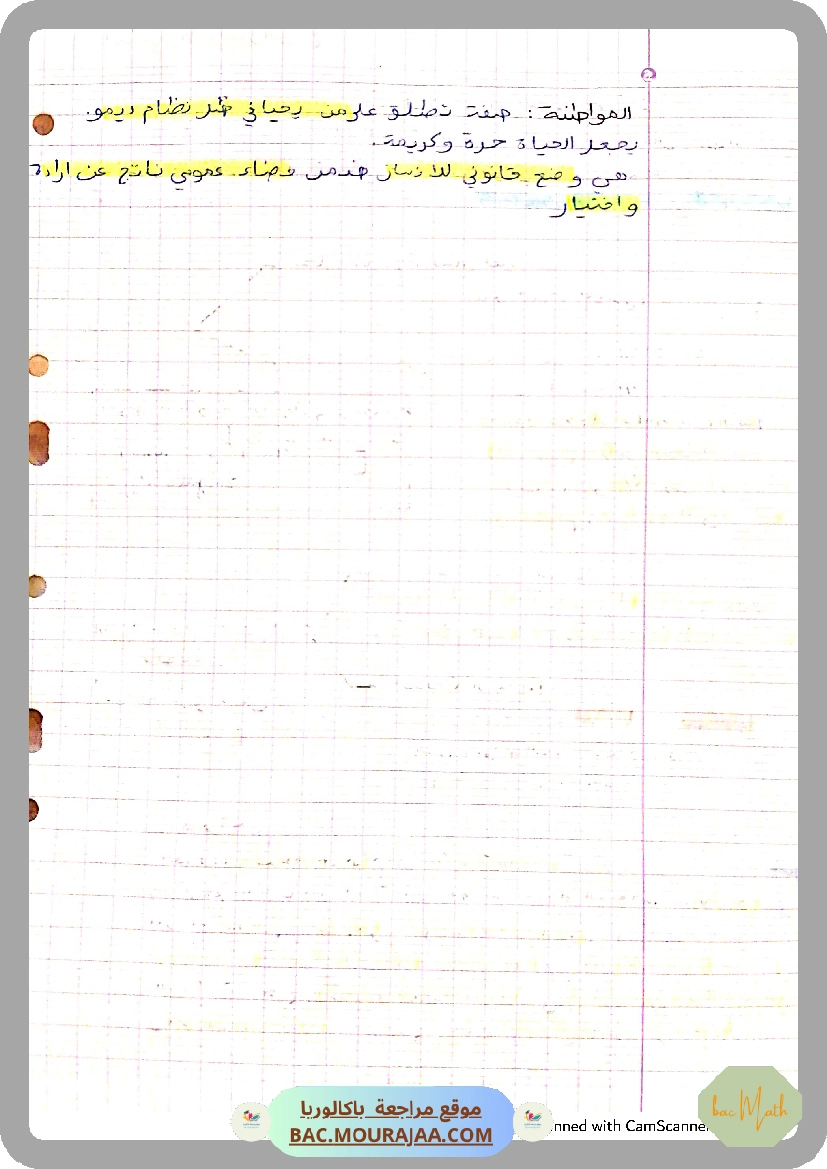 المواطنة : صفة تطلق على من يحيا في ظل نظام ديمو.
يجعل الحياة حرة وكريمة.
هي وضع قانوني للإنسان ضمن فضاء عمومي ناتج عن ارادة
واختيار
موقع مراجعة باكالوريا
BAC.MOURAJAA.COM
nned with CamScanner
bac Math